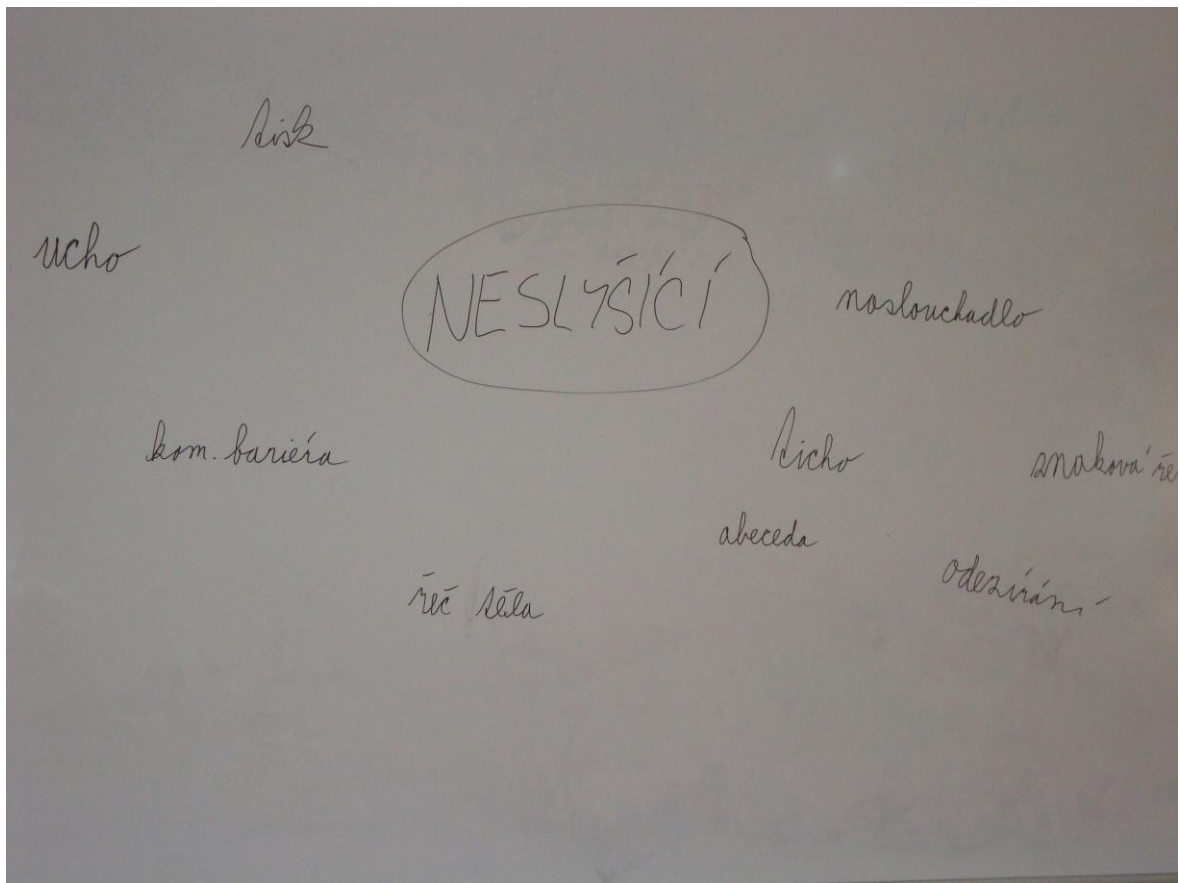 tisk
ucho
NESLYŠÍCÍ
naslouchadlo
kom. bariéra
ticho
znaková ře
abeceda
odezírání
řeč těla